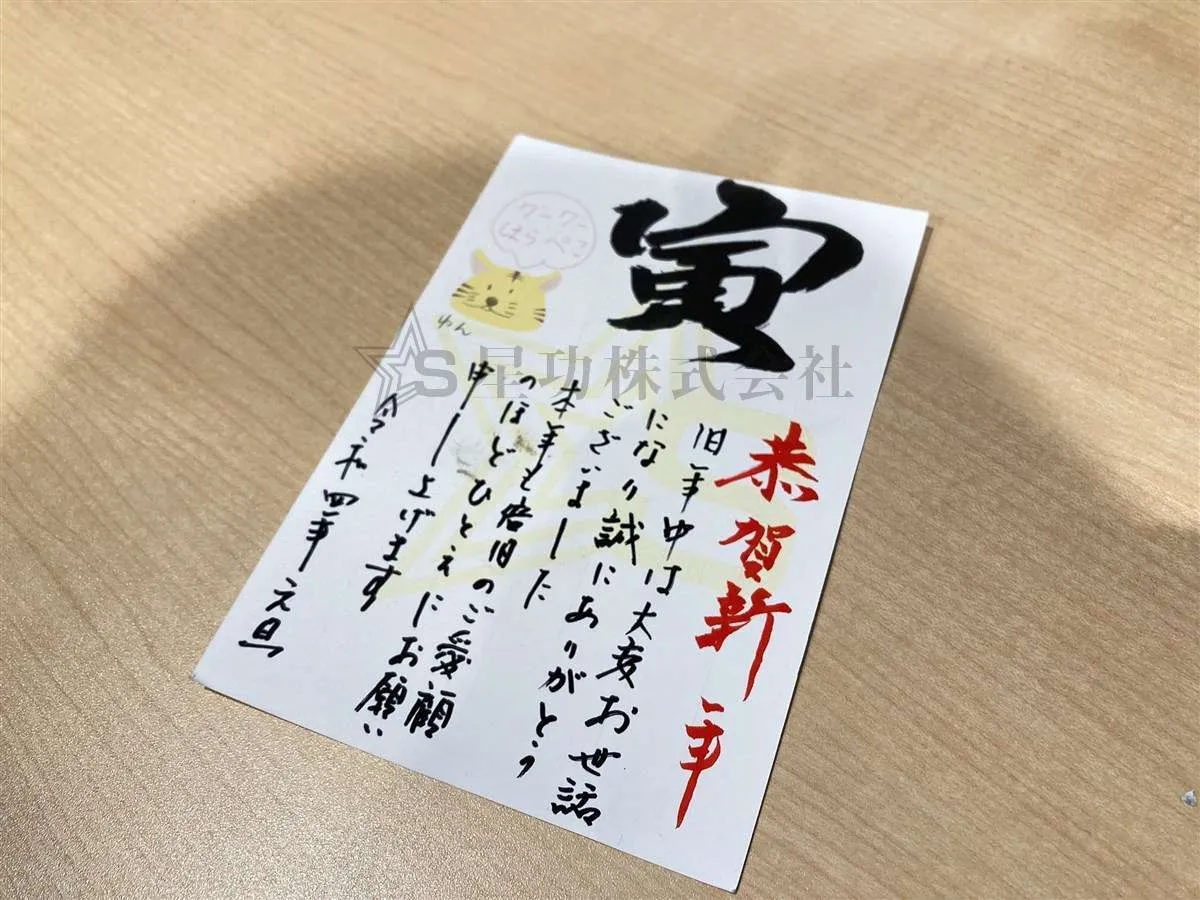 寅
恭賀新年
旧年中は大変お世話
になり誠にありがとう
ございました
本年も倍旧のご愛顧
のほどひとえにお願い
申し上げます
令和四年元旦
ワンワン
はらぺこ
わん
S星功株式会社